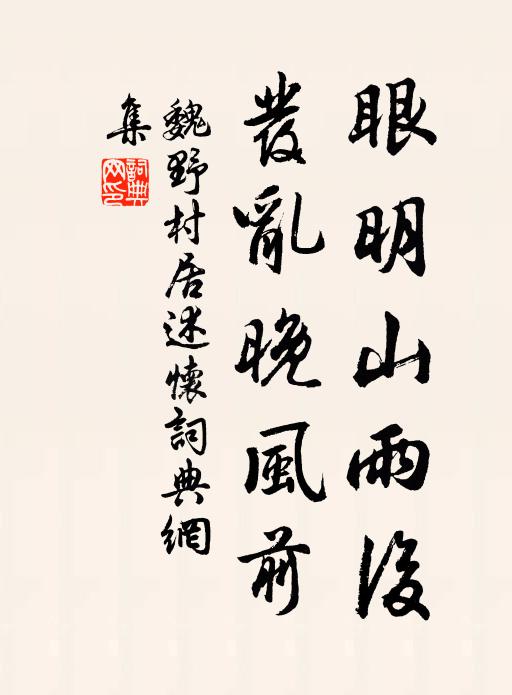 眼明山雨後
髮亂晚風前
魏野村居述懷詞典網
集
詞典
网印